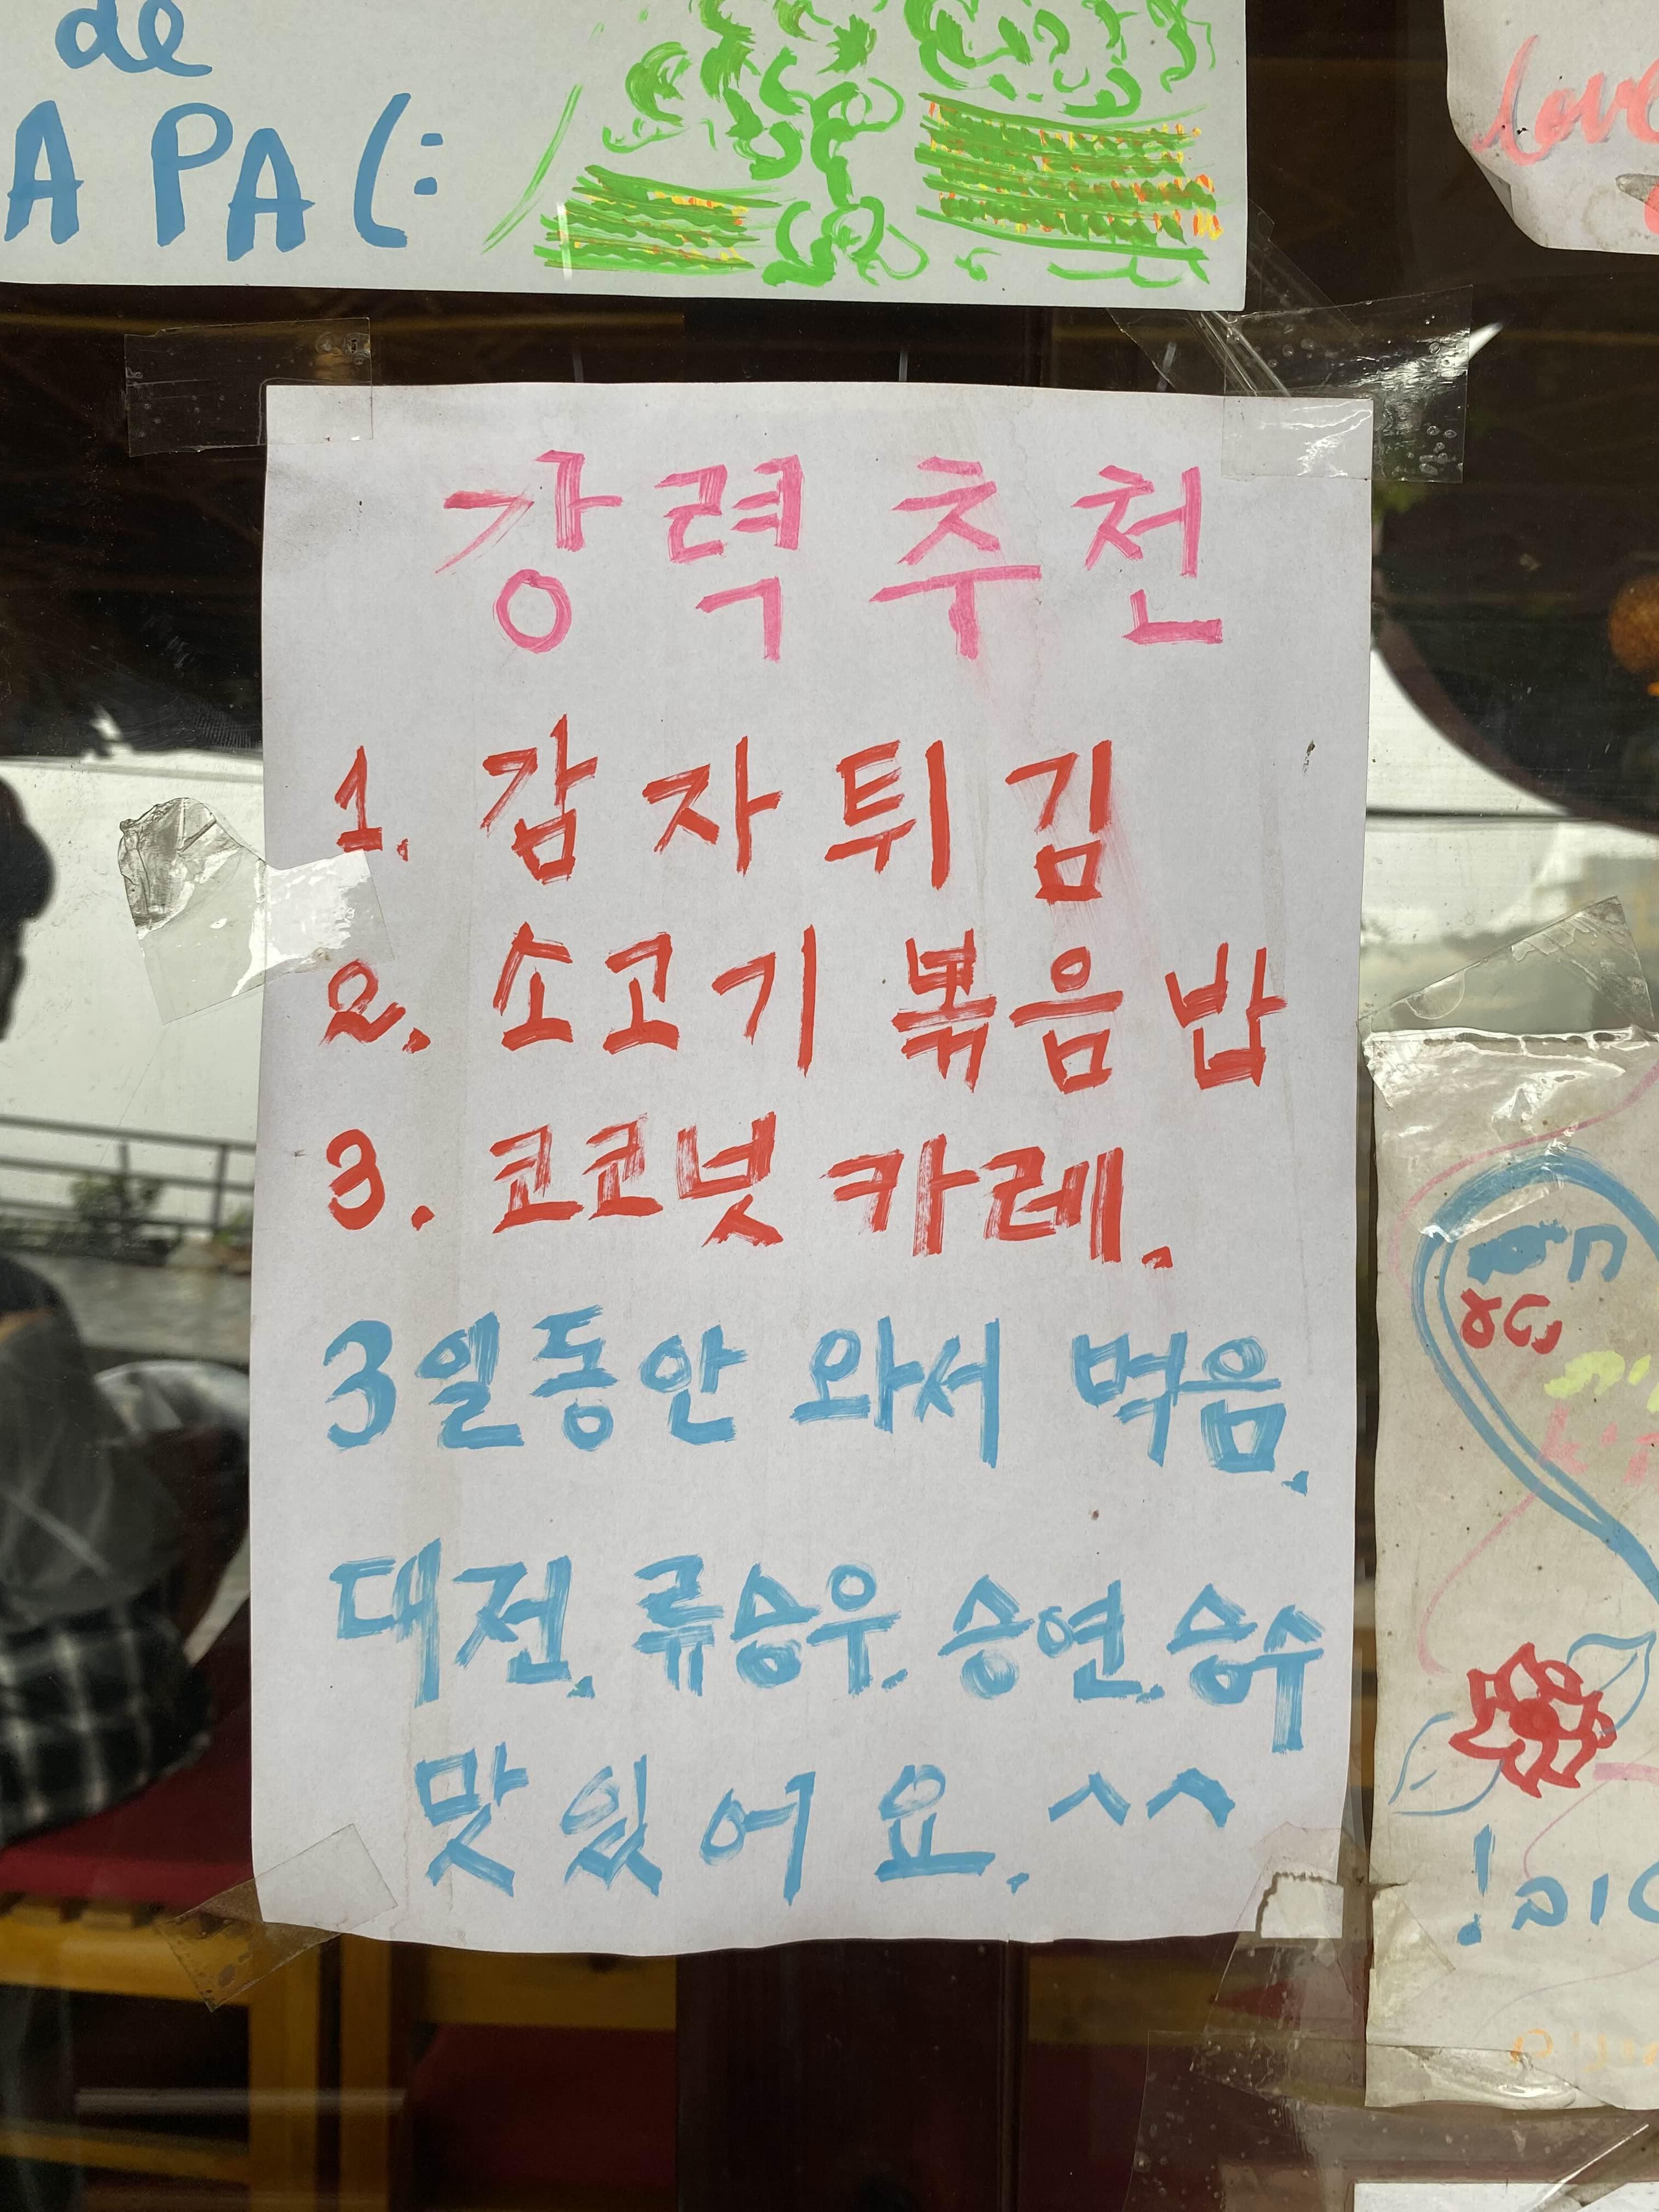 de
A PA (:
love
강력추천
1. 감자튀김
2. 소고기 볶음밥
3. 코코넛 카레.
3일동안 와서 먹음.
대전. 류승우. 승연. 승수
맛있어요. ^^